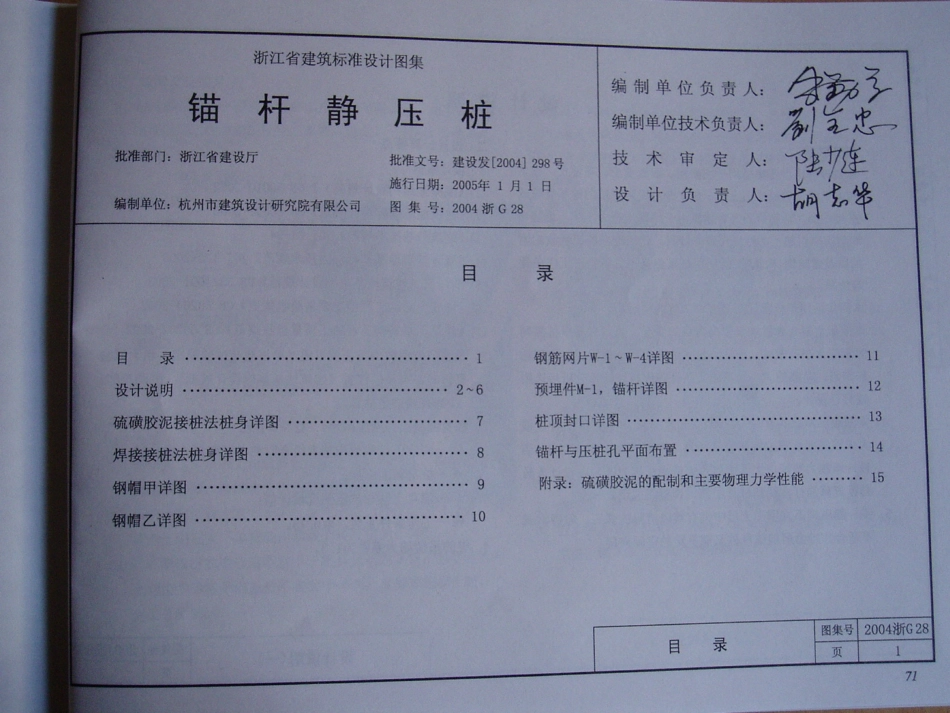 浙江省建筑标准设计图集
锚杆静压桩
批准部门：浙江省建设厅
批准文号：建设发[2004] 298号
施行日期：2005年 1月 1日
编制单位：杭州市建筑设计研究院有限公司
图集号：2004浙G28
编制单位负责人：
编制单位技术负责人：
技术审定人：
设计负责人：胡志华
目录
目录 ……………………………… 1
设计说明 ……………………………… 2~6
硫磺胶泥接桩法桩身详图 ……………………………… 7
焊接接桩法桩身详图 ……………………………… 8
钢帽甲详图 ……………………………… 9
钢帽乙详图 ……………………………… 10
钢筋网片W-1~W-4详图 ……………………………… 11
预埋件M-1，锚杆详图 ……………………………… 12
桩顶封口详图 ……………………………… 13
锚杆与压桩孔平面布置 ……………………………… 14
附录：硫磺胶泥的配制和主要物理力学性能 ……… 15
目录
图集号 2004浙G28
页 1
71